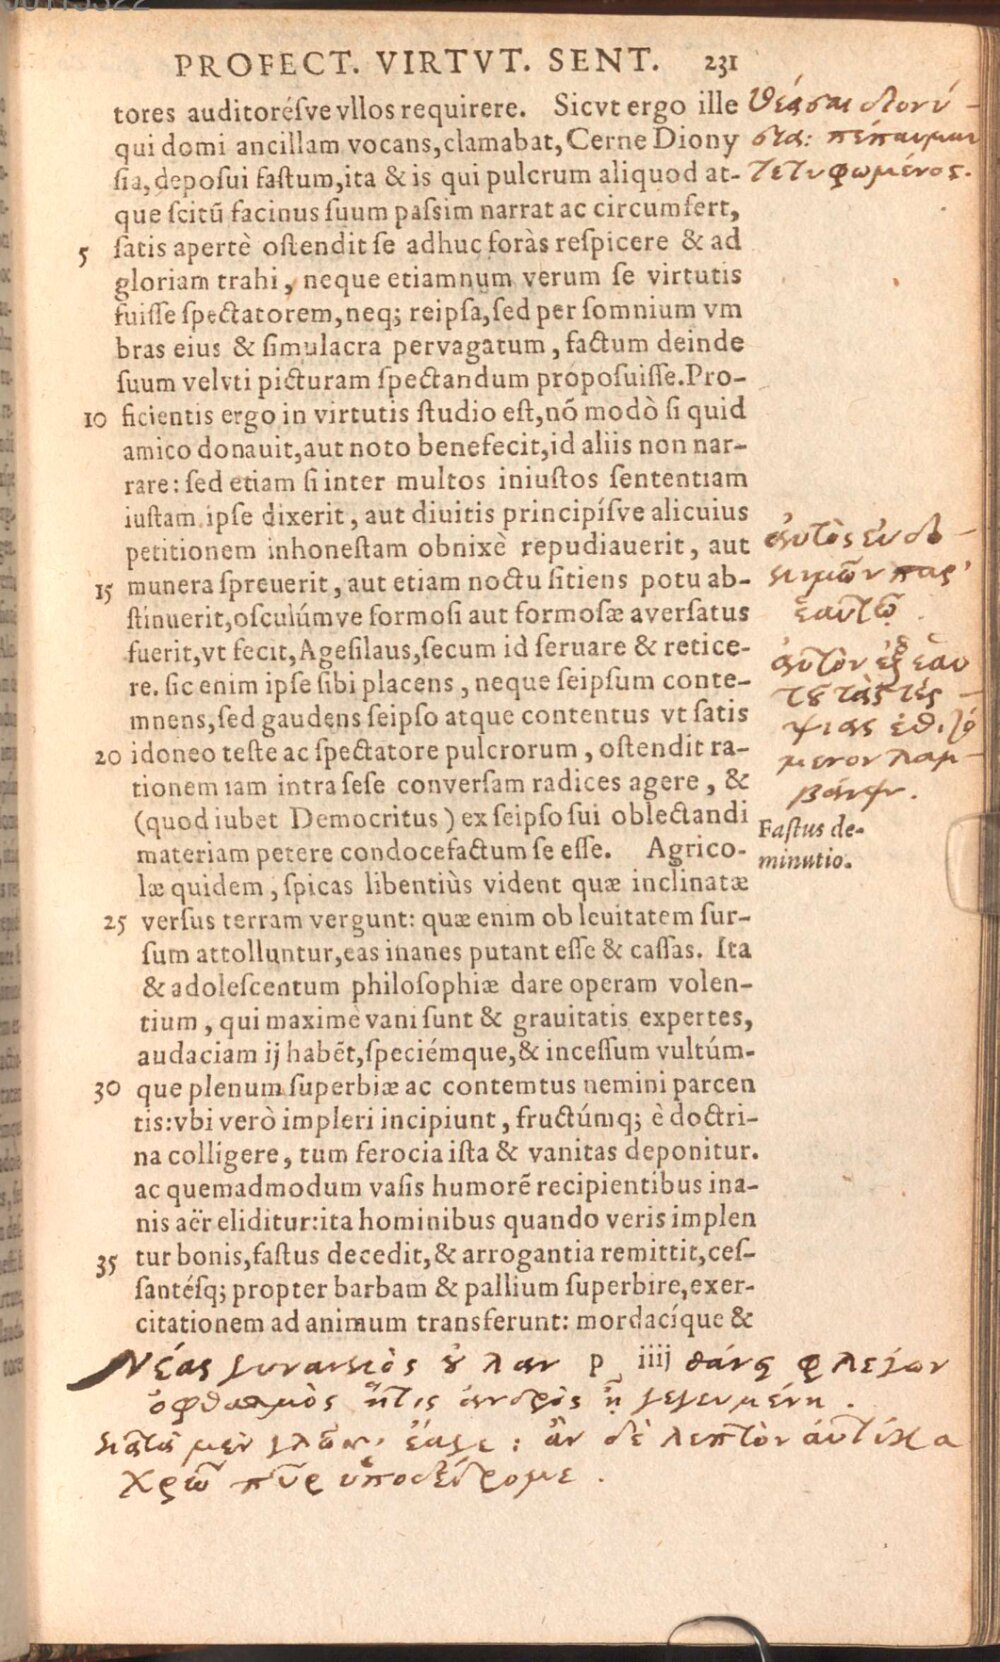 PROFECT. VIRTVT. SENT. 231
tores auditorésve vllos requirere. Sicvt ergo ille
qui domi ancillam vocans, clamabat, Cerne Diony
sia, deposui fastum, ita & is qui pulcrum aliquod at-
que scitū facinus suum passim narrat ac circumfert,
5 satis apertè ostendit se adhuc foràs respicere & ad
gloriam trahi, neque etiamnum verum se virtutis
fuisse spectatorem, neq; reipsa, sed per somnium vm
bras eius & simulacra pervagatum, factum deinde
suum velvti picturam spectandum proposuisse. Pro-
10 ficientis ergo in virtutis studio est, nō modò si quid
amico donauit, aut noto benefecit, id aliis non nar-
rare: sed etiam si inter multos iniustos sententiam
iustam ipse dixerit, aut diuitis principísve alicuius
petitionem inhonestam obnixè repudiauerit, aut
15 munera spreuerit, aut etiam noctu sitiens potu ab-
stinuerit, osculúmve formosi aut formosæ aversatus
fuerit, vt fecit, Agesilaus, secum id seruare & retice-
re. sic enim ipse sibi placens, neque seipsum conte-
mnens, sed gaudens seipso atque contentus vt satis
20 idoneo teste ac spectatore pulcrorum, ostendit ra-
tionem iam intra sese conversam radices agere, &
(quod iubet Democritus) ex seipso sui oblectandi
materiam petere condocefactum se esse. Agrico-
læ quidem, spicas libentiùs vident quæ inclinatæ
25 versus terram vergunt: quæ enim ob leuitatem sur-
sum attolluntur, eas inanes putant esse & cassas. Ita
& adolescentum philosophiæ dare operam volen-
tium, qui maximè vani sunt & grauitatis expertes,
audaciam ij habēt, speciémque, & incessum vultúm-
30 que plenum superbiæ ac contemtus nemini parcen
tis: vbi verò impleri incipiunt, fructúmq; è doctri-
na colligere, tum ferocia ista & vanitas deponitur.
ac quemadmodum vasis humorē recipientibus ina-
nis aër eliditur: ita hominibus quando veris implen
35 tur bonis, fastus decedit, & arrogantia remittit, ces-
santésq; propter barbam & pallium superbire, exer-
citationem ad animum transferunt: mordacíque &
p iiij
θέασαι διονυ-
σία: πέπαυμαι
τετυφωμένος.
αὐτὸς εὐδο-
κιμῶν παρ'
ἑαυτῷ
αὐτὸν ἐξ ἑαυ
τοῦ τὰς τέρ-
ψιας ἐθιζό
μενον λαμ-
βάνειν.
Fastus de-
minutio.
Νέας γυναικὸς οὔ με μὴ λάθῃ φλέγων
ὀφθαλμὸς ἥτις ἀνδρὸς ᾖ γεγευμένη.
κατὰ μὲν γλῶσσα ἔαγε: ἂν δὲ λεπτὸν αὐτίκα
χρῶ πῦρ ὑποδέδρομε.